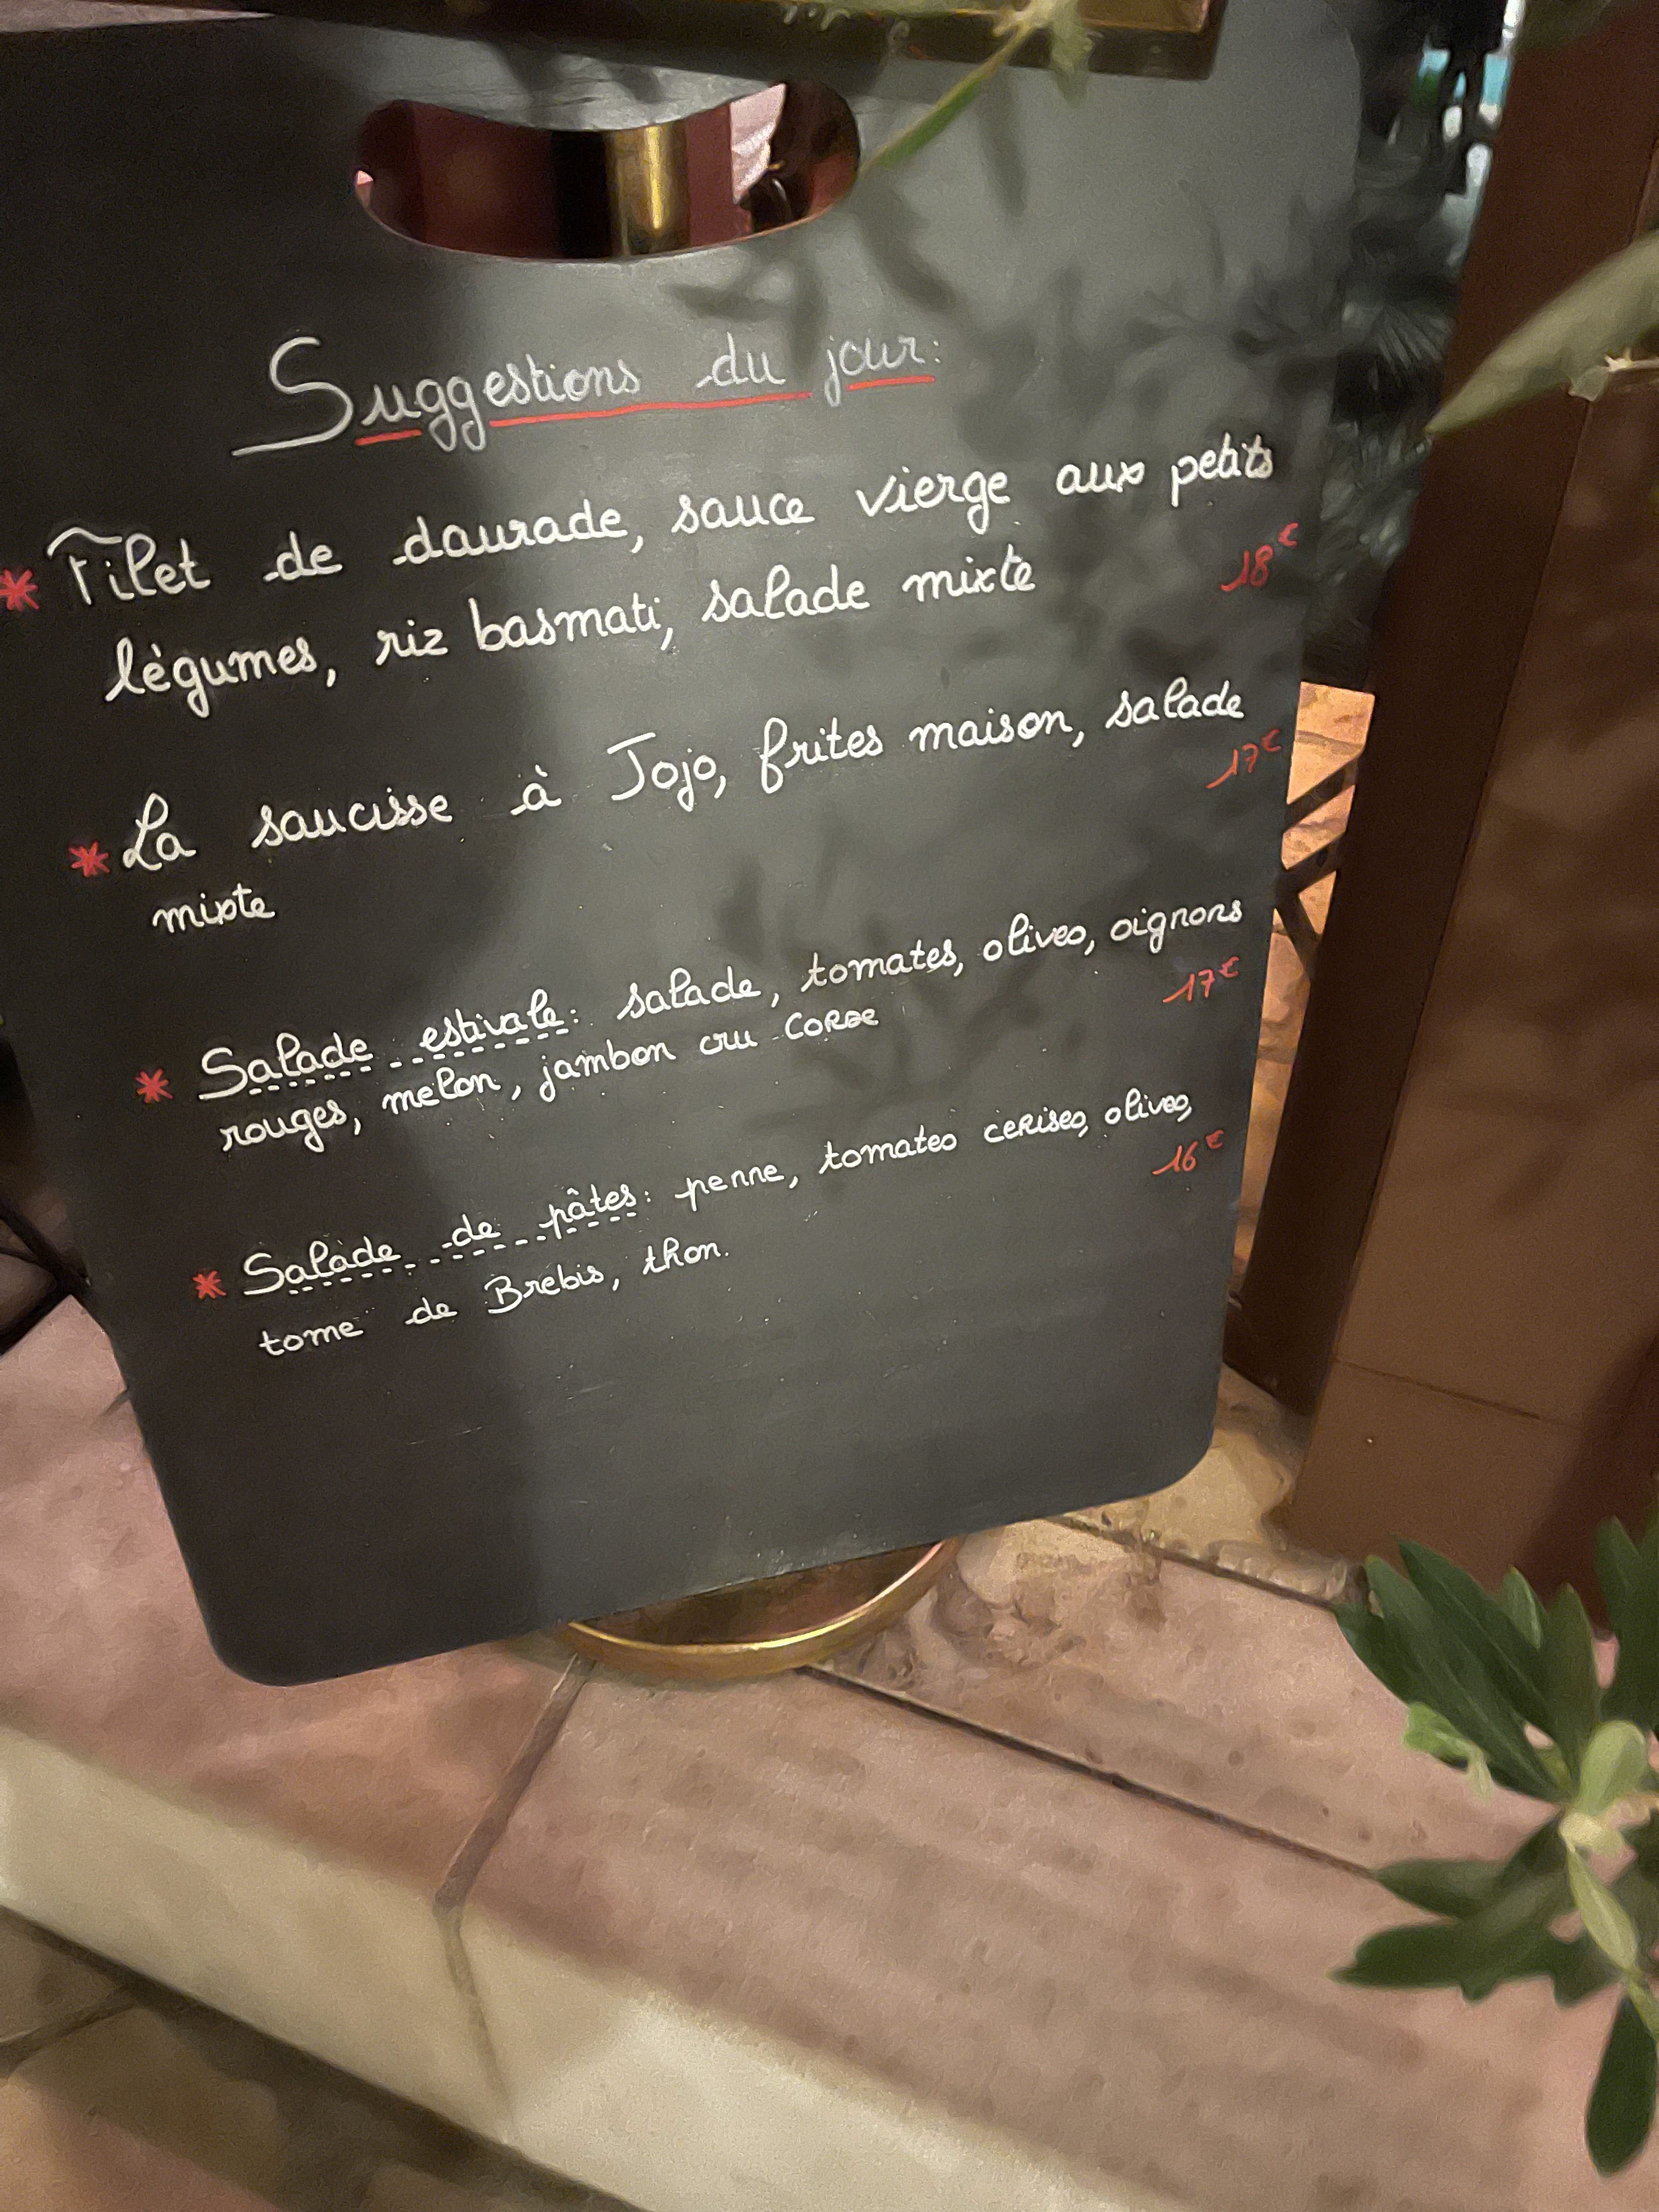 Suggestions du jour:
* Filet de daurade, sauce vierge aux petits
légumes, riz basmati, salade mixte 18€
* La saucisse à Jojo, frites maison, salade
mixte 17€
* Salade estivale: salade, tomates, olives, oignons
rouges, melon, jambon cru CORSE 17€
* Salade de pâtes: penne, tomates cerises, olives,
tome de Brebis, thon. 16€